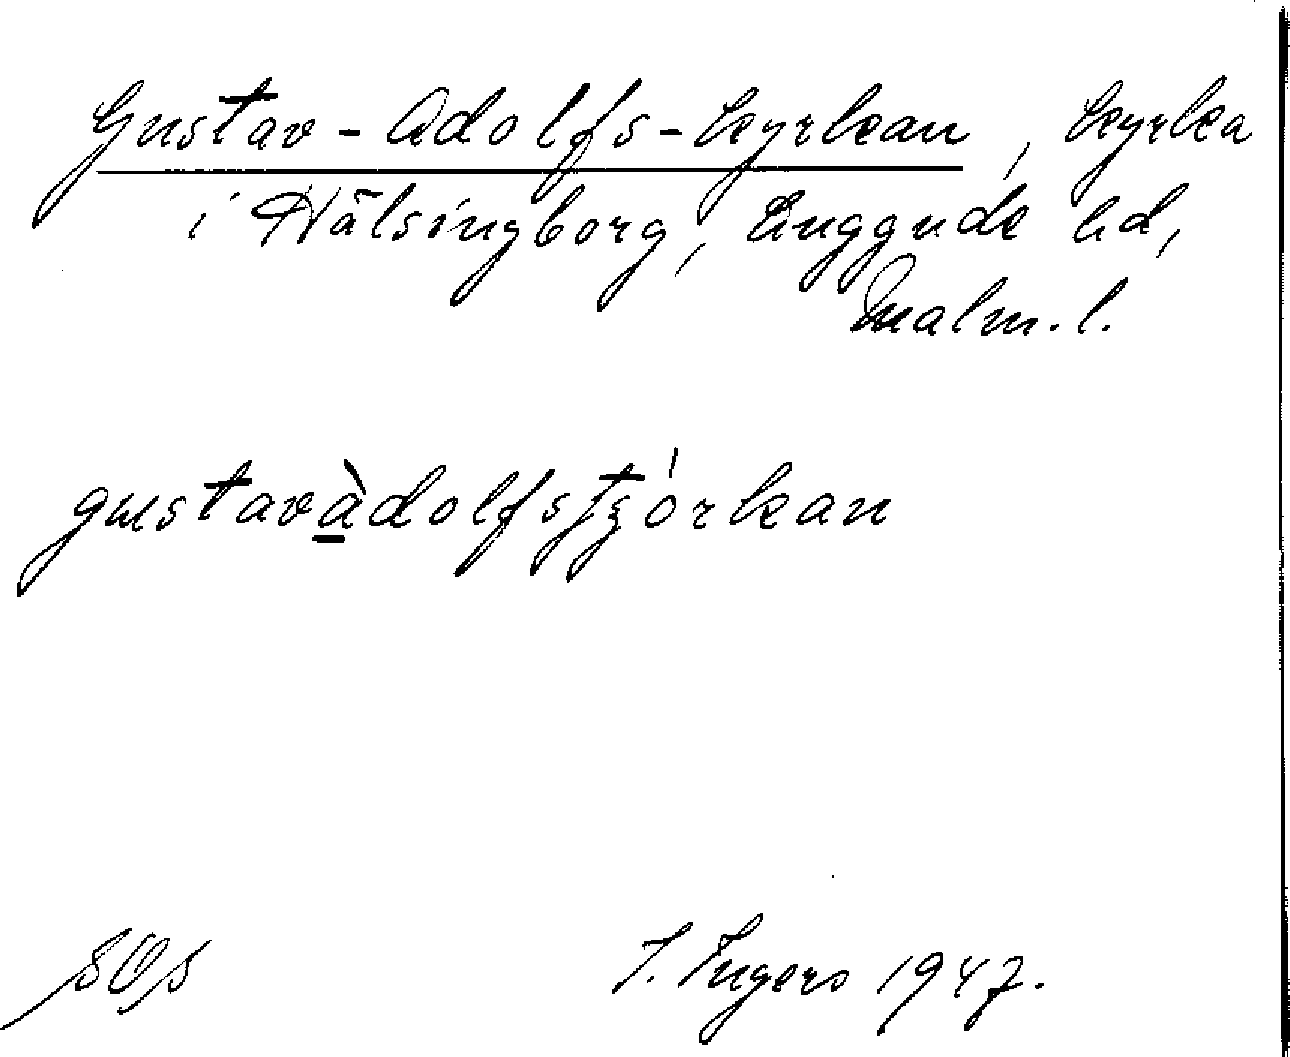 Gustav-Adolfs-kyrkan, kyrka
i Hälsingborg, Luggude hd,
Malm.l.
gustavàdolfstȥórkan
I. Ingers 1947.